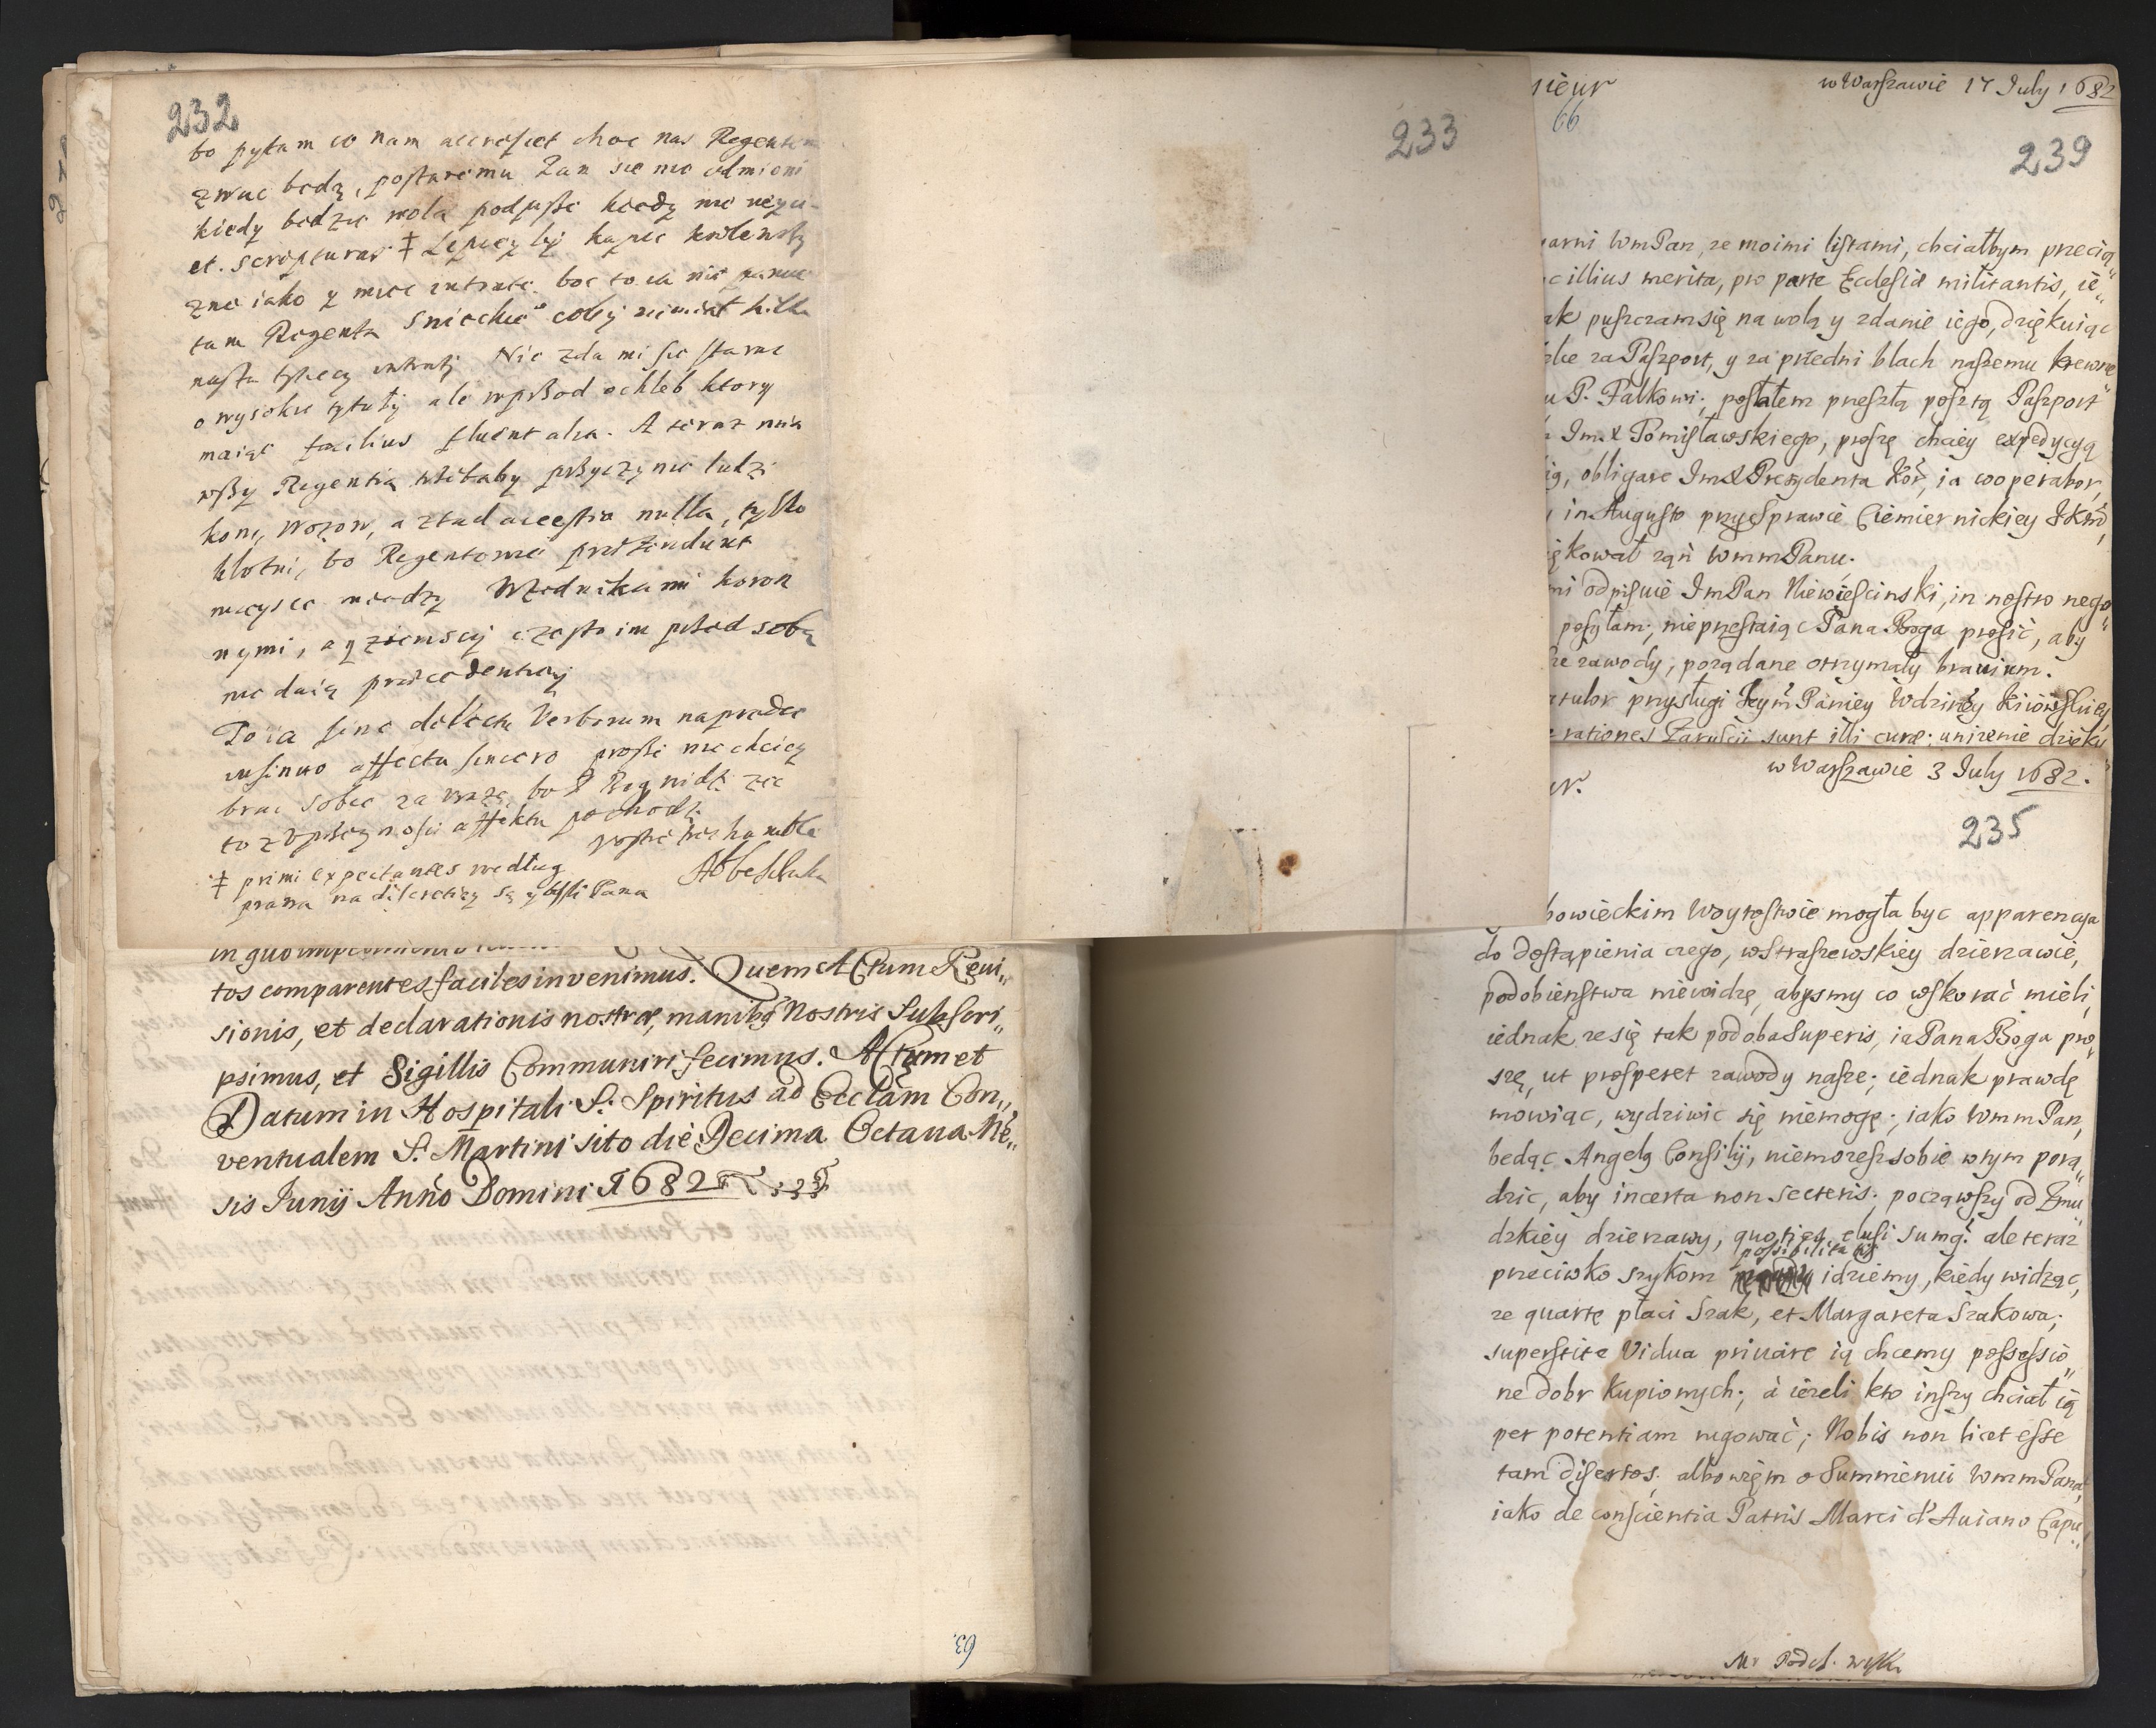 232
bo pytam co nam accrescet choc nas Regentam
zwac będą, postaremu Pan się nie odmieni
kiedy będzie wola podpisze kiedy nie
et scripturas ‡ Lepiey by
znie iako y miec intrate. boc to
tam Regenta Sniechcè coby
nasta tysiecy intraty Nie zda mi sie starac
o wysokie tytuły ale wprzod o chleb ktory
maiąc facilius fluent alia. A teraz
wszy Regentią trzebaby przyczynic ludzi
koni, wozow, a ztad accessia nulla, tylko
klotni, bo Regentowie prætendunt
mieysce miedzy Urzednikami koron
nymi, a y ziemscy czesto im przed sobą
nie daią præcedentiey
To ia sine delectu Verborum naprędce
insinuo affectu sincero prosze nie chciey
brac sobie za urazę, bo P Bog widzi ze
to z Uprzeymosci affektu pochodzi.
‡ primi expectantes według
prawa na discretiey są y łasce Pana
233
in quo
tos comparentes faciles invenimus. Quem Actum Reui„
sionis, et declarationis nostræ, manibq Nostris Subscri„
psimus, et Sigillis Communiri fecimus. Actum et
Datum in Hospitali S. Spiritus ad Ecclam Con„
ventualem S. Martini sito die Decima Octaua Mē„
sis Junij Anno Domini 1682
63
sieur w Warszawie 17 July 1682
66
239
WmPan, ze moimi listami, chciałbym przeciq„
illius merita, pro parte Ecclesiæ militantis, ie„
ak puszczam się na wolą y zdanie iego, dziękuiąc
za Paszport, y za przedni blach naszemu krewne„
u P. Pałkowi; posłałem przeszłą posztą Paszport
ImX Pomisławskiego, proszę chciey expedycyą
obligare ImX Prezydenta Kor, ia cooperabor,
in Augusto przy Sprawie Ciemiernickiey
kował zań WmmPanu.
odpisuie ImPan Niewiescinski, in nostro nego„
posyłam; nieprzestaiąc Pana Boga prosić, aby
zawody, pożądane otrzymały brauium.
przysługi Ieym Paniey Wdziney Kiiowskiey,
rationes Zarusŭ sunt illi curæ; unizenie dzięku„
ur. w Warszawie 3 July 1682.
235
bowieckim Woytostwie mogła byc apparencya
do dostąpienia czego, w Straszewskiey dzierzawie,
podobienstwa niewidzę, abysmy co wskorać mieli,
iednak ze się tak podoba Superis, ia Pana Boga pro„
szę, ut prosperet zawody nasze; iednak prawdę
mowiąc, wydziwic się niemogę; iako WmmPan,
bedąc Angelq Consilij, niemozesz sobie w tym pora„
dzic, aby incerta non Secteris; począwszy od Zmu„
dzkiey dzierzawy, quoties elusi sumq. ale teraz
possibilitatis
przeciwko szykom idziemy, kiedy widząc,
ze quartę płaci Szak, et Margareta Szakowa;
superstite Vidua priuare ią chcemy possessio„
ne dobr kupionych; à iezeli kto inszy chciał ią
per potentiam rugować; Nobis non licet esse
tam disertos; albowiem o Summieniu WmmPana,
iako de conscientia Patris Marci d'Auiano Capu„